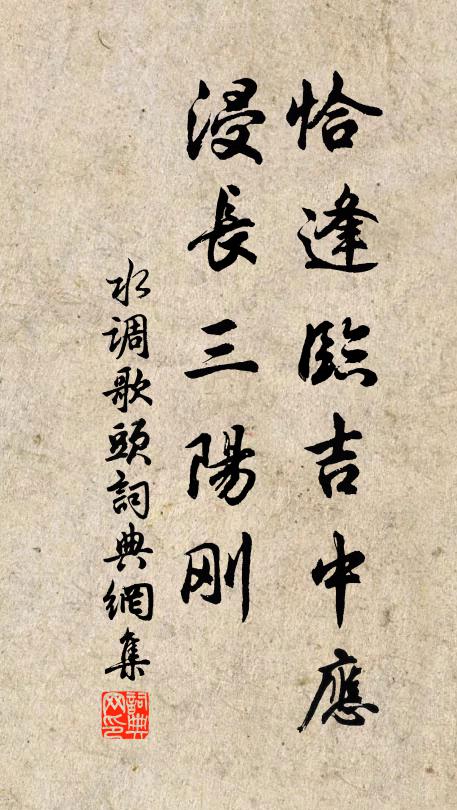 恰逢臨吉中應
浸長三陽刚
水调歌頭詞典網集
詞典网印